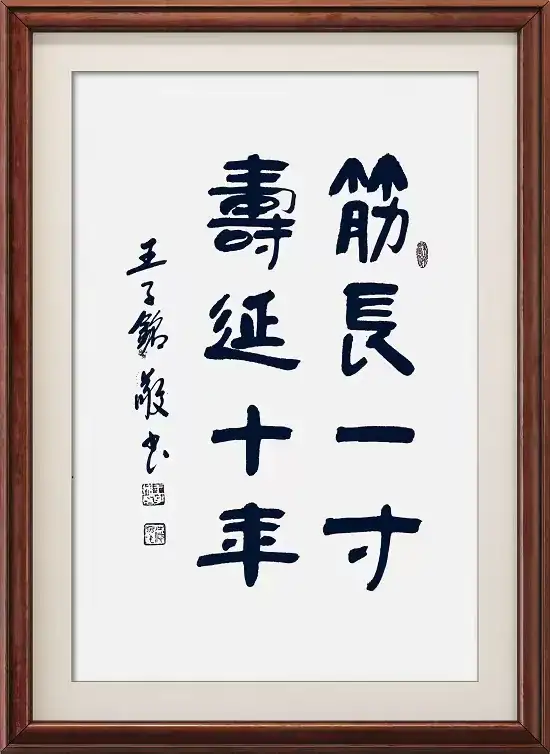 筋長一寸
壽延十年
王子銘敬書